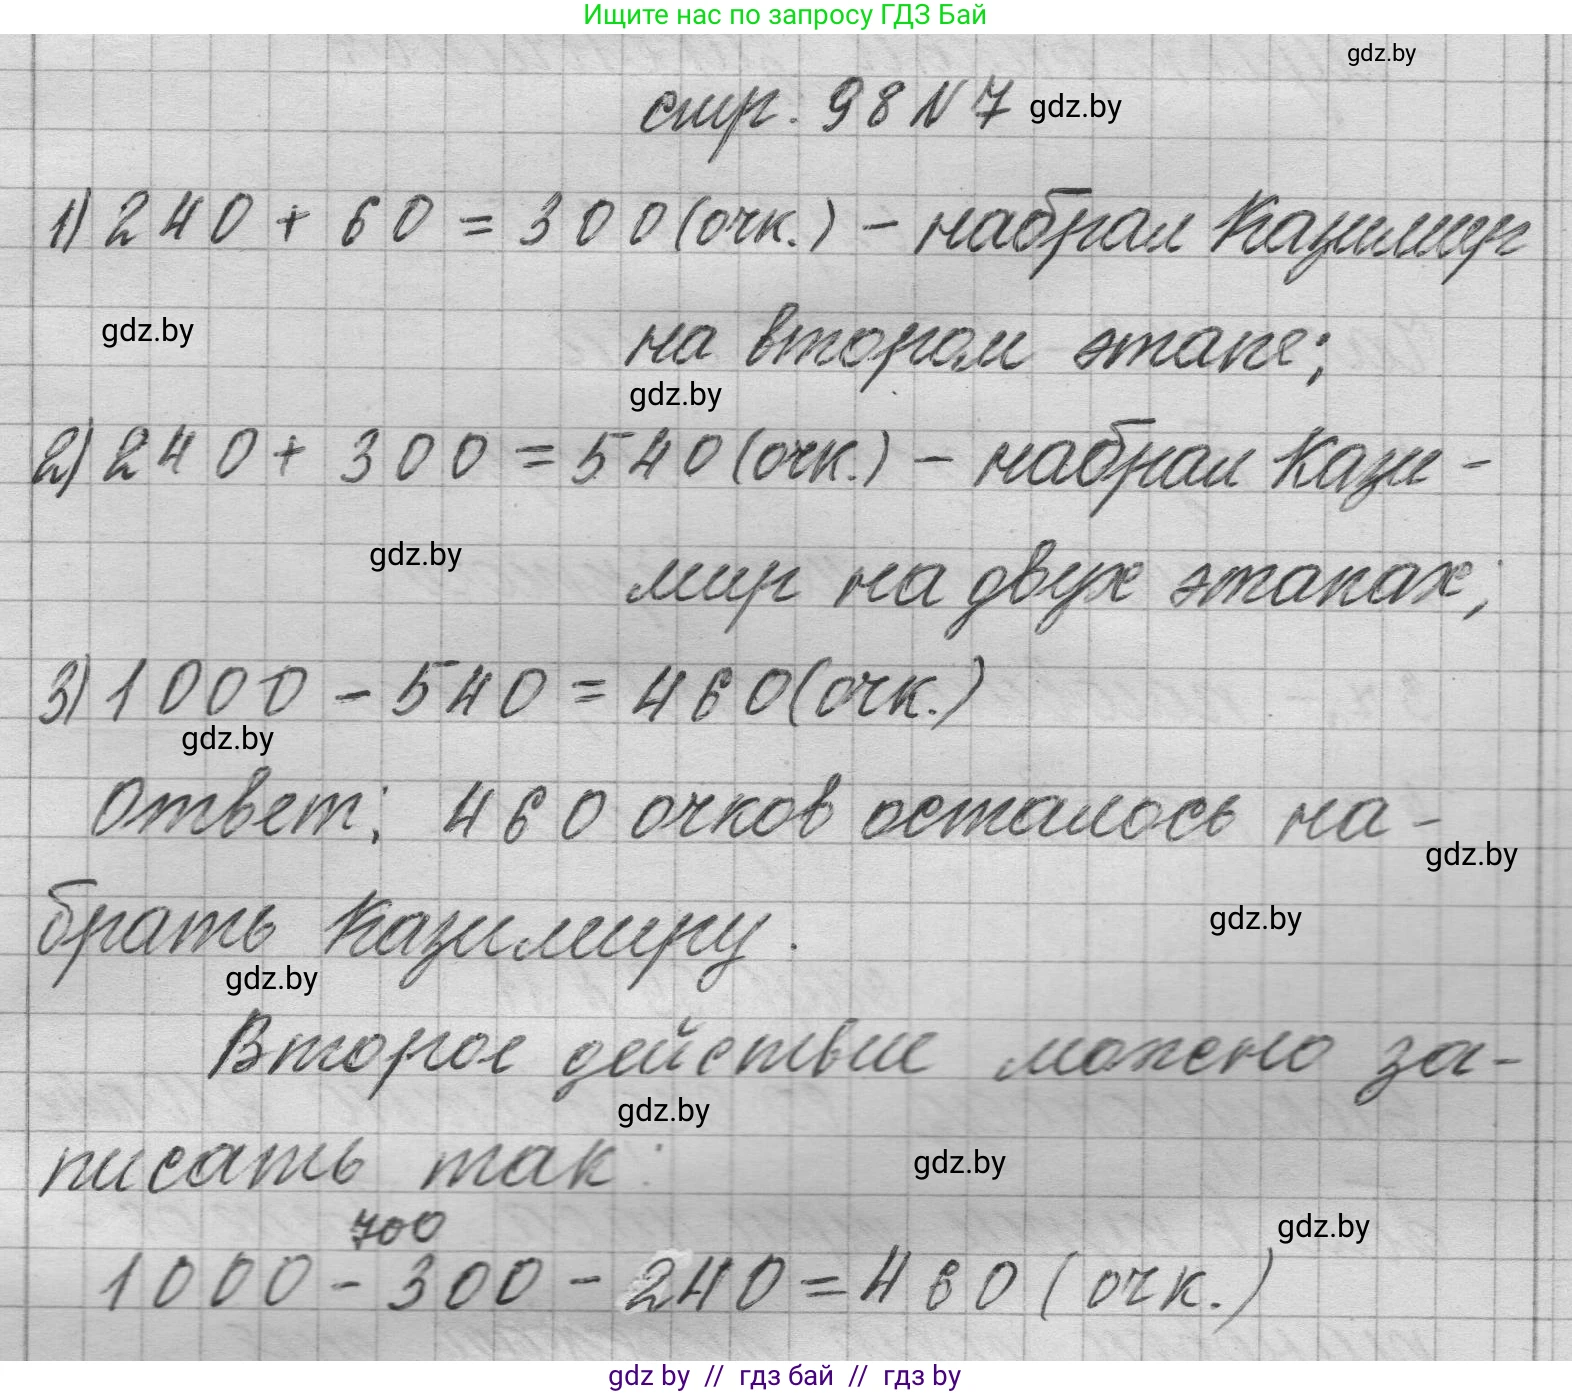 Ищите нас по запросу ГДЗ Бай
gdz.by
стр. 98 N 7 gdz.by
1) 240 + 60 = 300 (очк.) – набрал Казимир
gdz.by
на втором этапе;
gdz.by
2) 240 + 300 = 540 (очк.) – набрал Кази-
gdz.by
мир на двух этапах;
3) 1000 - 540 = 460 (очк.)
gdz.by
Ответ: 460 очков осталось на-
gdz.by
брать Казимиру.
gdz.by
gdz.by
Второе действие можно за-
gdz.by
писать так:
gdz.by
700
gdz.by
1000 - 300 - 240 = 460 (очк.)
gdz by // гдз бай // гдз by